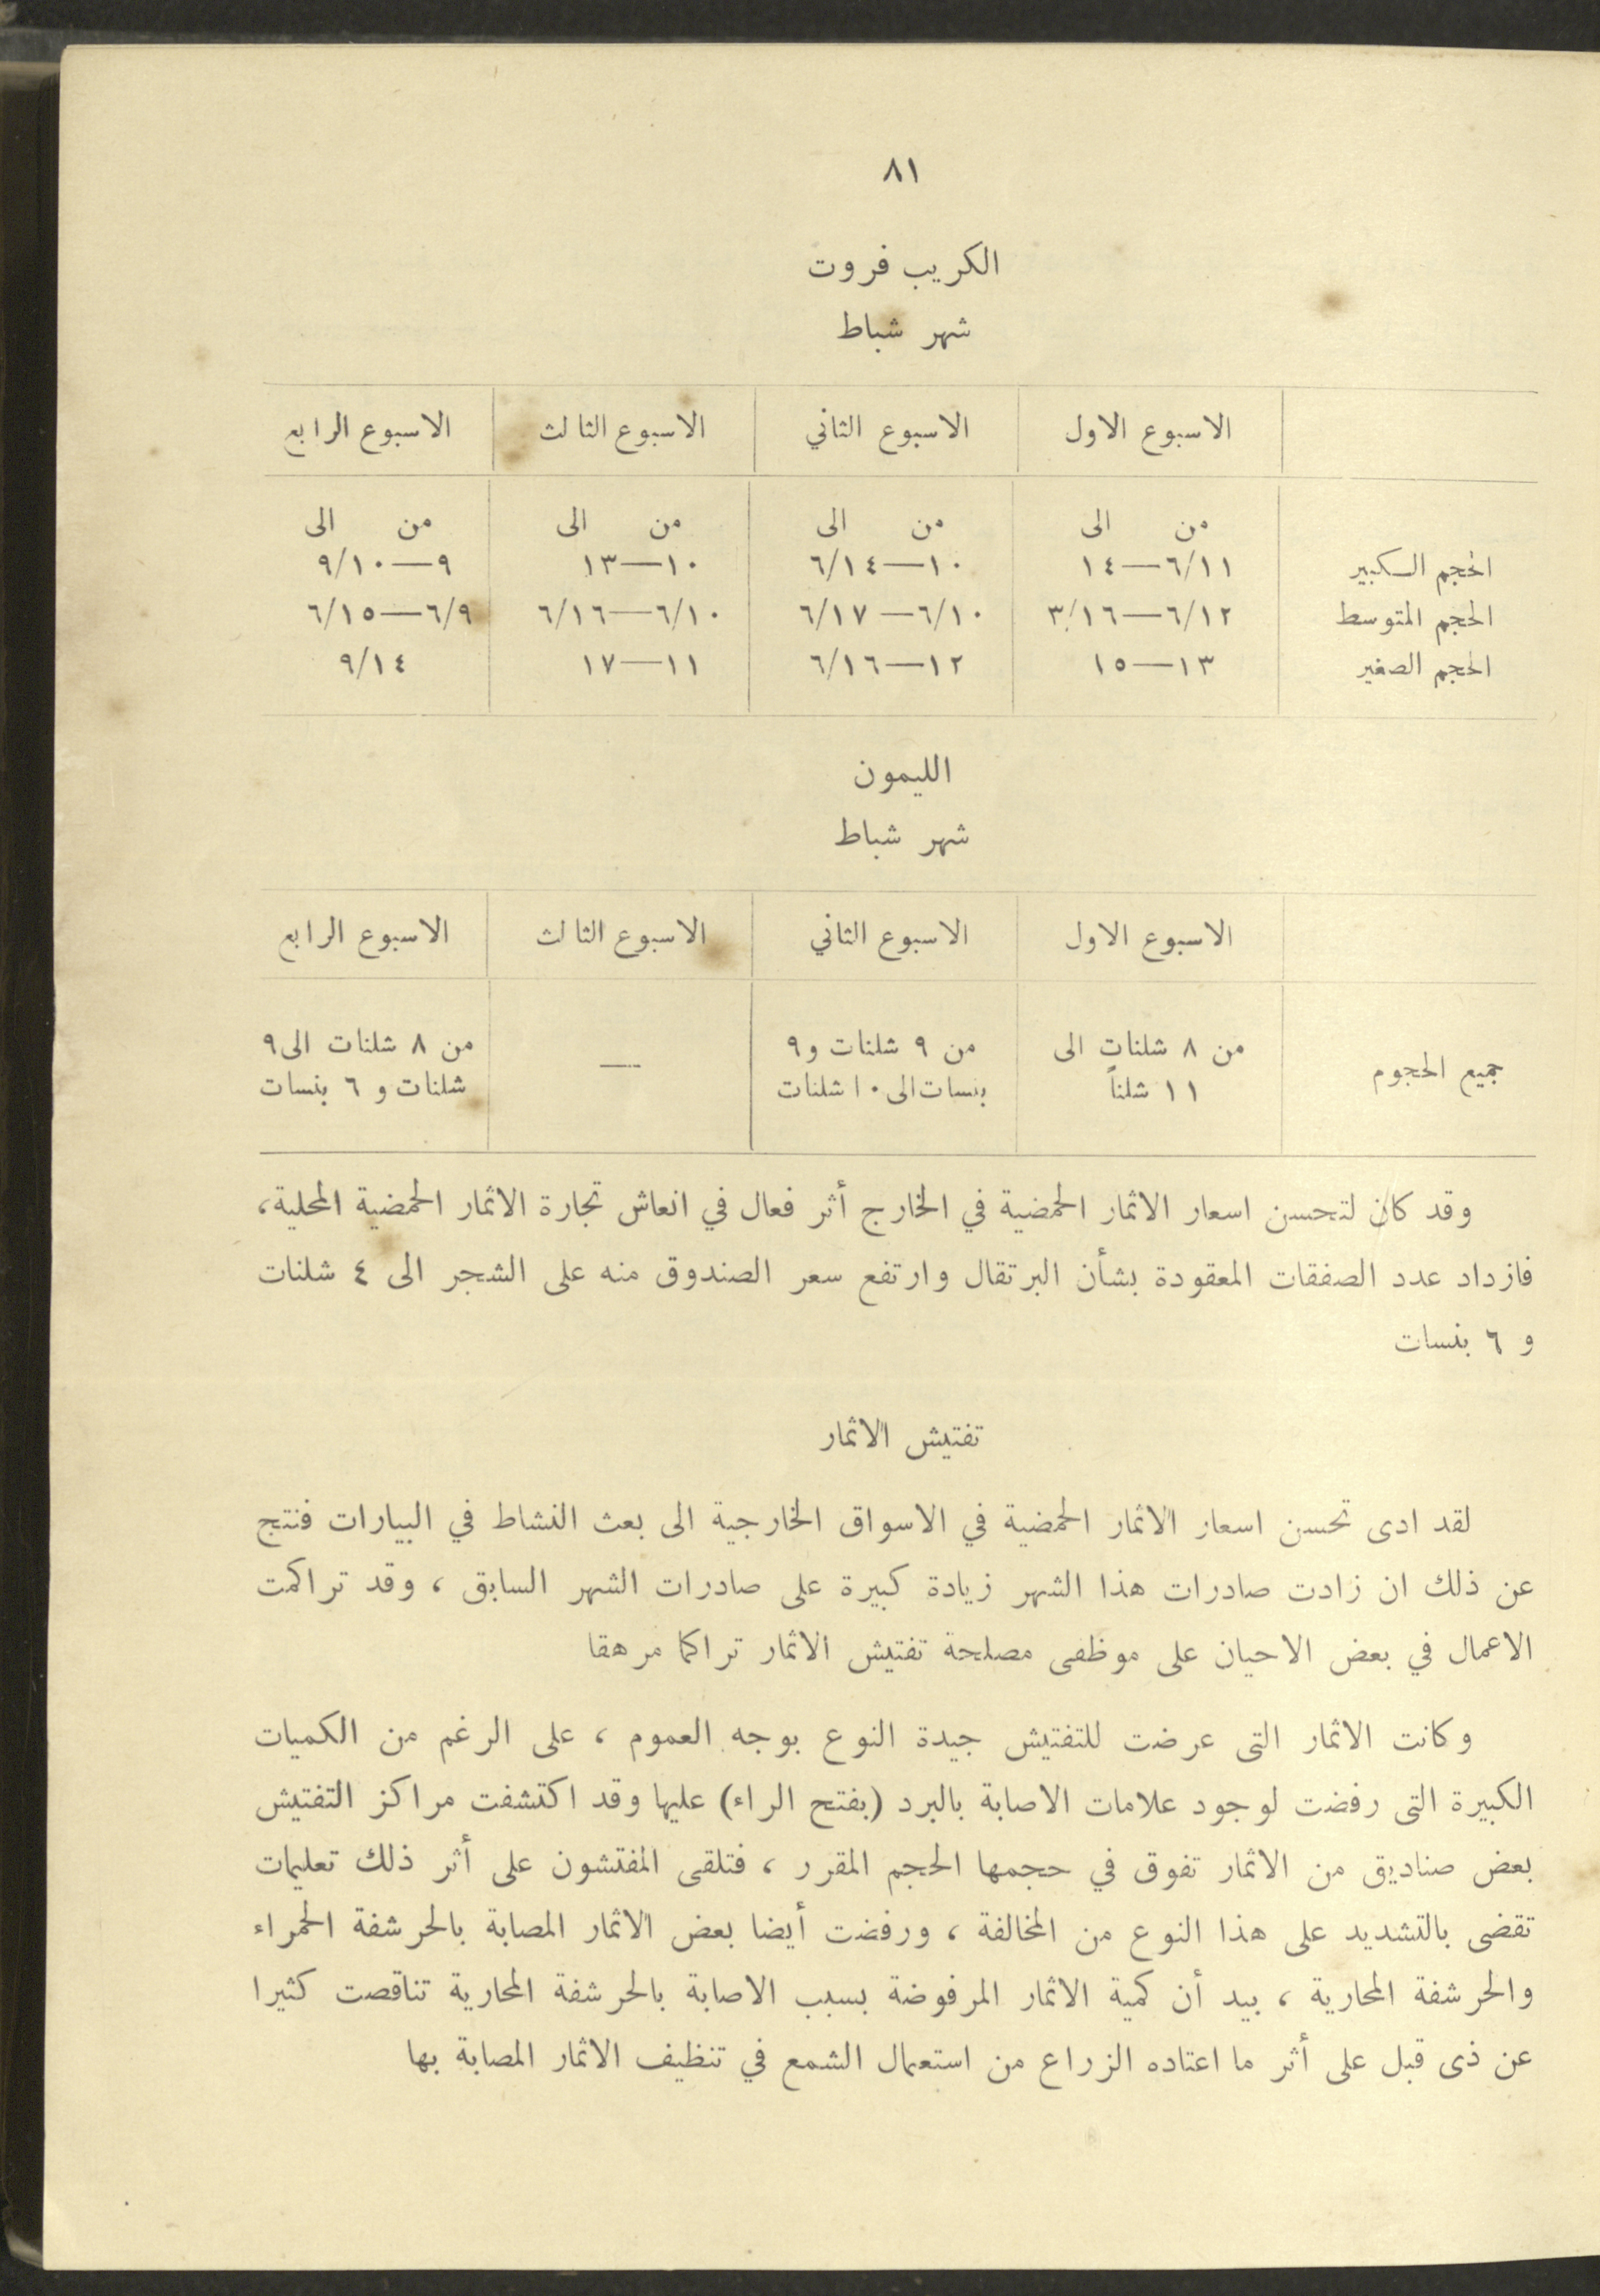 ٨١
الكريب فروت
شهر شباط
الاسبوع الاول الاسبوع الثاني الاسبوع الثالث الاسبوع الرابع
من الى من الى من الى من الى
الحجم الكبير ٦/١١—١٤ ١٠—٦/١٤ ١٠—١٣ ٩—٩/١٠
الحجم المتوسط ٦/١٢—٣/١٦ ٦/١٠—٦/١٧ ٦/١٠—٦/١٦ ٦/٩—٦/١٥
الحجم الصغير ١٣—١٥ ١٢—٦/١٦ ١١—١٧ ٩/١٤
الليمون
شهر شباط
الاسبوع الاول الاسبوع الثاني الاسبوع الثالث الاسبوع الرابع
جميع الحجوم من ٨ شلنات الى من ٩ شلنات و٩ — من ٨ شلنات الى٩
١١ شلناً بنسات الى ١٠ شلنات شلنات و ٦ بنسات
وقد كان لتحسن اسعار الاثمار الحمضية في الخارج أثر فعال في انعاش تجارة الاثمار الحمضية المحلية،
فازداد عدد الصفقات المعقودة بشأن البرتقال وارتفع سعر الصندوق منه على الشجر الى ٤ شلنات
و ٦ بنسات
تفتيش الاثمار
لقد ادى تحسن اسعار الاثمار الحمضية في الاسواق الخارجية الى بعث النشاط في البيارات فنتج
عن ذلك ان زادت صادرات هذا الشهر زيادة كبيرة على صادرات الشهر السابق ، وقد تراكمت
الاعمال في بعض الاحيان على موظفى مصلحة تفتيش الاثمار تراكما مرهقا
وكانت الاثمار التى عرضت للتفتيش جيدة النوع بوجه العموم ، على الرغم من الكميات
الكبيرة التى رفضت لوجود علامات الاصابة بالبرد (بفتح الراء) عليها وقد اكتشفت مراكز التفتيش
بعض صناديق من الاثمار تفوق في حجمها الحجم المقرر ، فتلقى المفتشون على أثر ذلك تعليمات
تقضى بالتشديد على هذا النوع من المخالفة ، ورفضت أيضا بعض الاثمار المصابة بالحرشفة الحمراء
والحرشفة المحارية ، بيد أن كمية الاثمار المرفوضة بسبب الاصابة بالحرشفة المحارية تناقصت كثيرا
عن ذى قبل على أثر ما اعتاده الزراع من استعمال الشمع في تنظيف الاثمار المصابة بها